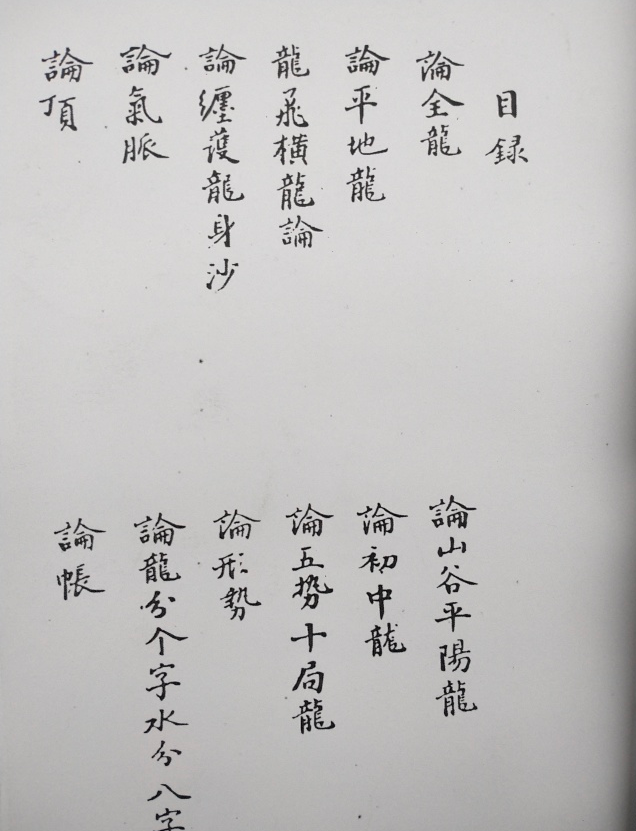 目録
論全龍
論山谷平陽龍
論平地龍
論初中龍
龍飛橫龍論
論五勢十局龍
論纏護龍身沙
論形勢
論氣脈
論龍分个字水分八字
論頂
論帳